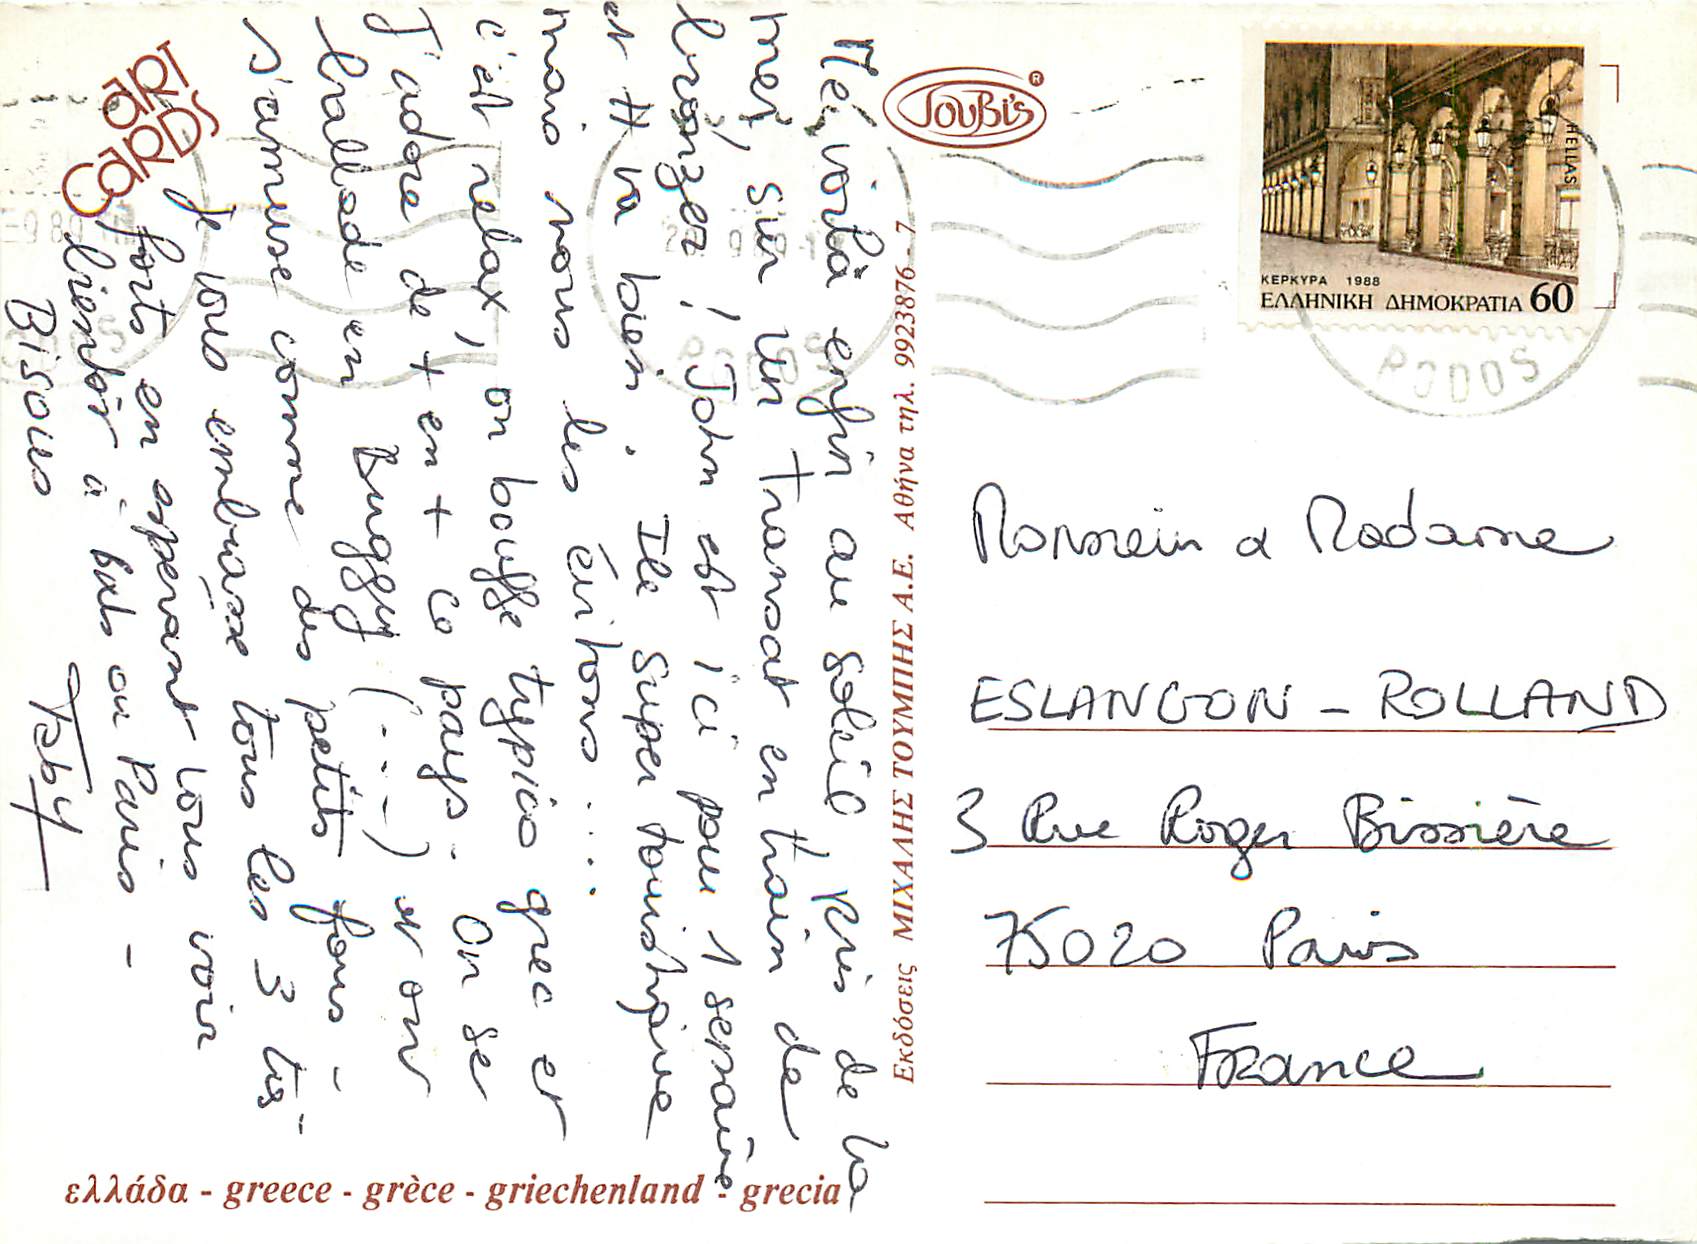 ART
ART
CARDS
Me voilà enfin au soleil, près de la
mer, sur un transat en train de
bronzer ! John est ici pour 1 semaine
et tt va bien. Ile super touristique
mais nous les évitons....
c'est relax, on bouffe typico grec et
J'adore de + en + ce pays. On se
ballade en Buggy (---) et on
s'amuse comme des petits fous -
Je vous embrasse tous les 3 très
forts en espérant vous voir
bientôt à bats ou Paris -
Bisous
Faby
ΤουΒi's ®
Εκδόσεις ΜΙΧΑΛΗΣ ΤΟΥΜΠΗΣ Α.Ε. Αθήνα τηλ. 9923876-7
HELLAS
ΚΕΡΚΥΡΑ 1988
ΕΛΛΗΝΙΚΗ ΔΗΜΟΚΡΑΤΙΑ 60
RODOS
Monsieur & Madame
ESLANGON - ROLLAND
3 Rue Roger Bissière
75020 Paris
France
ελλάδα - greece - grèce - griechenland - grecia